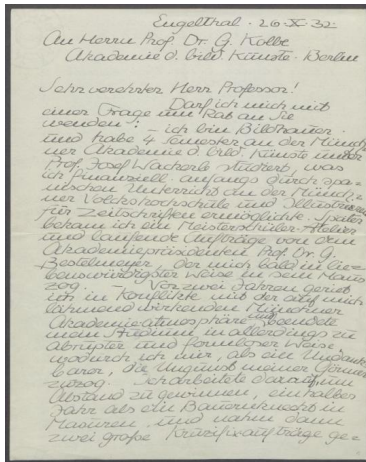 Engelthal · 26·X·32·
An Herrn Prof. Dr. G. Kolbe
Akademie d. bild. Künste · Berlin
Sehr verehrter Herr Professor!
Darf ich mich mit
einer Frage um Rat an Sie
wenden: – ich bin Bildhauer
und habe 4 Semester an der Münch-
ner Akademie d. bild. Künste unter
Prof. Josef Wackerle studiert, was
ich finanziell anfangs durch spa=
nischen Unterricht an der Münch=
ner Volkshochschule und Illustrationen
für Zeitschriften ermöglichte. Später
bekam ich ein Meisterschüler-Atelier
und laufende Aufträge von dem
Akademiepräsident Prof. Dr. G.
Bestelmeyer, der mich bald in lie=
benswürdigster Weise in sein Haus
zog. – Vor zwei Jahren geriet
ich in Konflikte mit der auf mich
lähmend wirkenden Münchner
Akademieatmosphäre und beendete
mein Studium in allerdings zu
abrupter und formloser Weise,
wodurch ich mir, als ein Undank=
barer, die Ungunst meiner Gönner
zuzog. Ich arbeitete darauf, um
Abstand zu gewinnen, ein halbes
Jahr als ein Bauernknecht in
Masuren und nahm dann
zwei große Kruzifixaufträge ge=